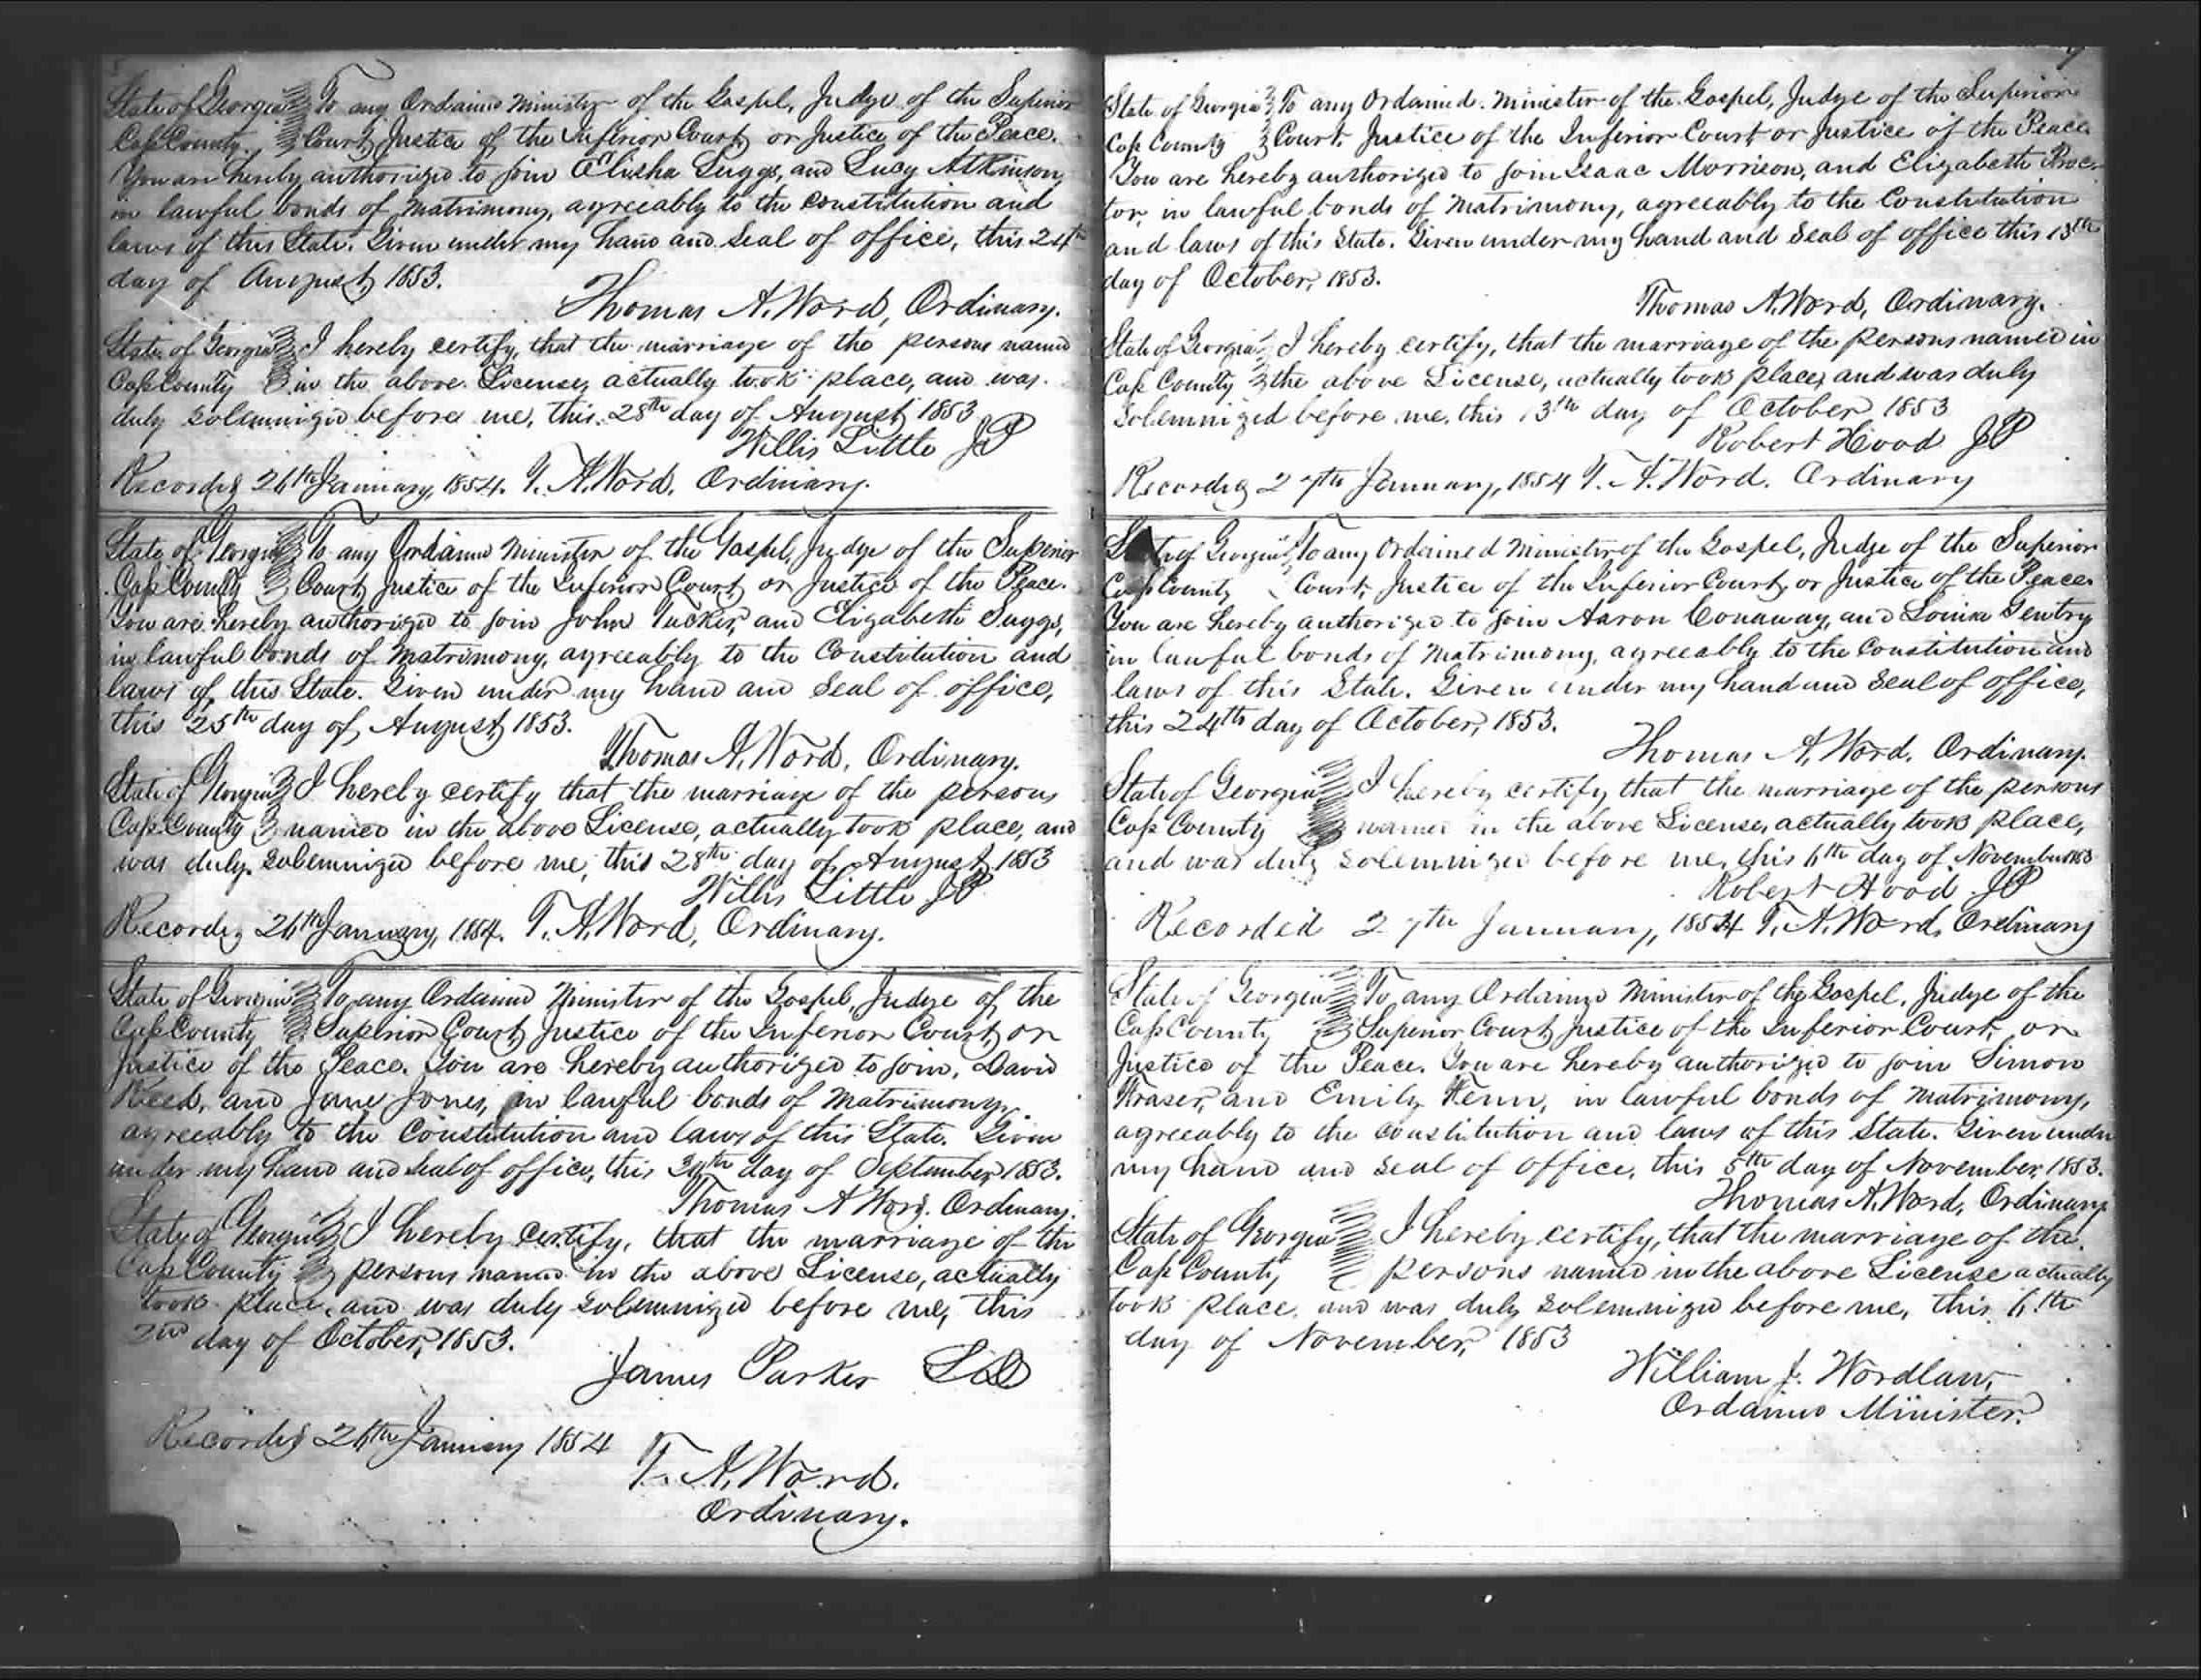 State of Georgia To any Ordained Minister of the Gospel, Judge of the Superior
Cass County. Court, Justice of the Inferior Court, or Justice of the Peace.
You are hereby authorized to join Elisha Suggs, and Lucy Atkinson,
in lawful bonds of Matrimony, agreeably to the constitution and
laws of this State. Given under my hand and seal of office, this 24th
day of August, 1853.
Thomas A. Word, Ordinary.
State of Georgia I hereby certify, that the marriage of the persons named
Cass County in the above License, actually took place, and was
duly solemnized before me, this 28th day of August, 1853
Willis Little JP
Recorded 26th January, 1854. T. A. Word. Ordinary.
State of Georgia To any Ordained Minister of the Gospel, Judge of the Superior
Cass County Court, Justice of the Inferior Court, or Justice of the Peace.
You are hereby authorized to join John Tucker, and Elizabeth Suggs,
in lawful bonds of Matrimony, agreeably to the Constitution and
laws of this State. Given under my hand and seal of office,
this 25th day of August, 1853.
Thomas A. Word, Ordinary.
State of Georgia I hereby certify that the marriage of the persons
Cass County named in the above License, actually took place, and
was duly solemnized before me, this 28th day of August, 1853
Willis Little JP
Recorded 26th January, 1854. T. A. Word, Ordinary.
State of Georgia To any Ordained Minister of the Gospel, Judge of the
Cass County Superior Court, Justice of the Inferior Court, or
Justice of the Peace. You are hereby authorized to join, David
Reed, and Jane Jones, in lawful bonds of Matrimony,
agreeably to the Constitution and laws of this State. Given
under my hand and seal of office, this day of September, 1853.
Thomas A Word. Ordinary.
State of Georgia I hereby certify, that the marriage of the
Cass County persons named in the above License, actually
took place, and was duly solemnized before me, this
2nd day of October, 1853.
James Parker
Recorded 26th January 1854
T. A. Word.
Ordinary.
State of Georgia To any Ordained Minister of the Gospel, Judge of the Superior
Cass County Court, Justice of the Inferior Court or Justice of the Peace
You are hereby authorized to join Isaac Morrison, and Elizabeth Proc-
tor, in lawful bonds of Matrimony, agreeably to the Constitution
and laws of this State. Given under my hand and seal of office this 13th
day of October, 1853.
Thomas A. Word, Ordinary.
State of Georgia I hereby certify, that the marriage of the persons named in
Cass County the above License, actually took place, and was duly
solemnized before me, this 13th day of October 1853
Robert Hood JP
Recorded 27th January, 1854 T. A. Word. Ordinary
State of Georgia To any Ordained Minister of the Gospel, Judge of the Superior
Cass County Court, Justice of the Inferior Court, or Justice of the Peace.
You are hereby authorized to join Aaron Conaway, and Louisa Gentry
in lawful bonds of Matrimony, agreeably to the Constitution and
laws of this State. Given under my hand and seal of office,
this 24th day of October, 1853.
Thomas A. Word, Ordinary.
State of Georgia I hereby certify that the marriage of the persons
Cass County named in the above License, actually took place,
and was duly solemnized before me, this 6th day of November 1853
Robert Hood JP
Recorded 27th January, 1854 T. A. Word, Ordinary
State of Georgia To any Ordained Minister of the Gospel, Judge of the
Cass County Superior Court, Justice of the Inferior Court, or
Justice of the Peace. You are hereby authorized to join Simon
Fraser, and Emily Fenn, in lawful bonds of Matrimony,
agreeably to the constitution and laws of this State. Given under
my hand and seal of office, this 5th day of November, 1853.
Thomas A. Word, Ordinary
State of Georgia I hereby certify, that the marriage of the
Cass County persons named in the above License actually
took place, and was duly solemnized before me, this 6th
day of November, 1853
William J. Wordlaw,
Ordained Minister.